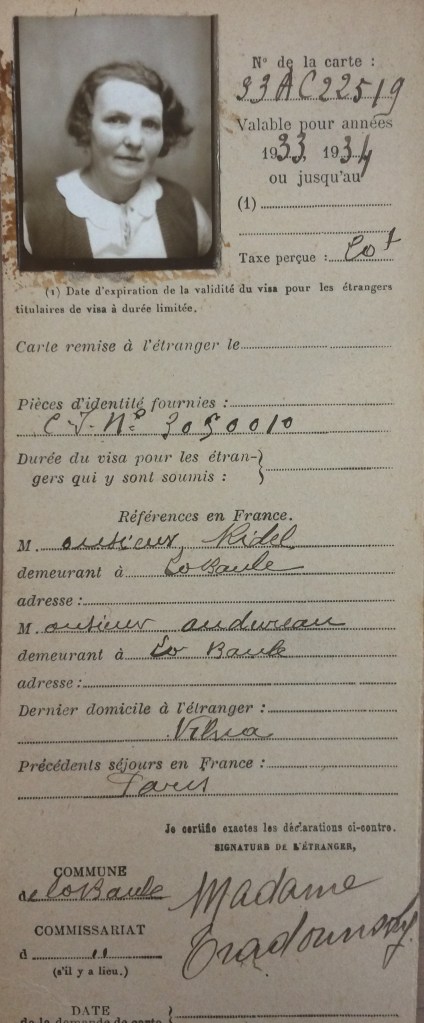 N° de la carte :
33AC22519
Valable pour années
1933, 1934
ou jusqu'au
(1)
Taxe perçue :
(1) Date d'expiration de la validité du visa pour les étrangers
titulaires de visa à durée limitée.
Carte remise à l'étranger le
Pièces d'identité fournies :
C.I. N° 3050010
Durée du visa pour les étran-}
gers qui y sont soumis :
Références en France.
M. onsieur Ridel
demeurant à La Baule
adresse :
M. onsieur andureau
demeurant à La Baule
adresse :
Dernier domicile à l'étranger :
Vilna
Précédents séjours en France :
Paris
Je certifie exactes les déclarations ci-contre.
SIGNATURE DE L'ÉTRANGER,
COMMUNE
de La Baule
Madame
COMMISSARIAT
d "
(s'il y a lieu.)
DATE
de la demande de carte